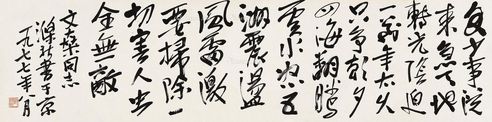 多少事從
来急天地
轉光陰迫
一萬年太久
只争朝夕
四海翻腾
雲水怒五
洲震盪
風雷激
要掃除一
切害人虫
全無敵
同志
書于京
一九七七年八月